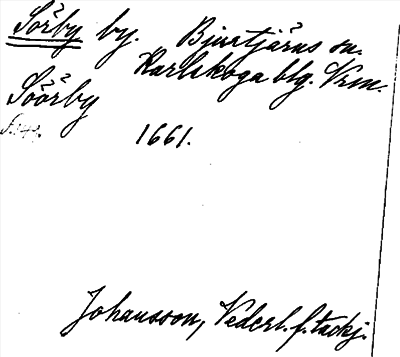 Sörby by. Bjurtjärns sn.
Karlskoga blg. Vrm.
Söörby
1661.
Johansson, Vederl. f. tackj.